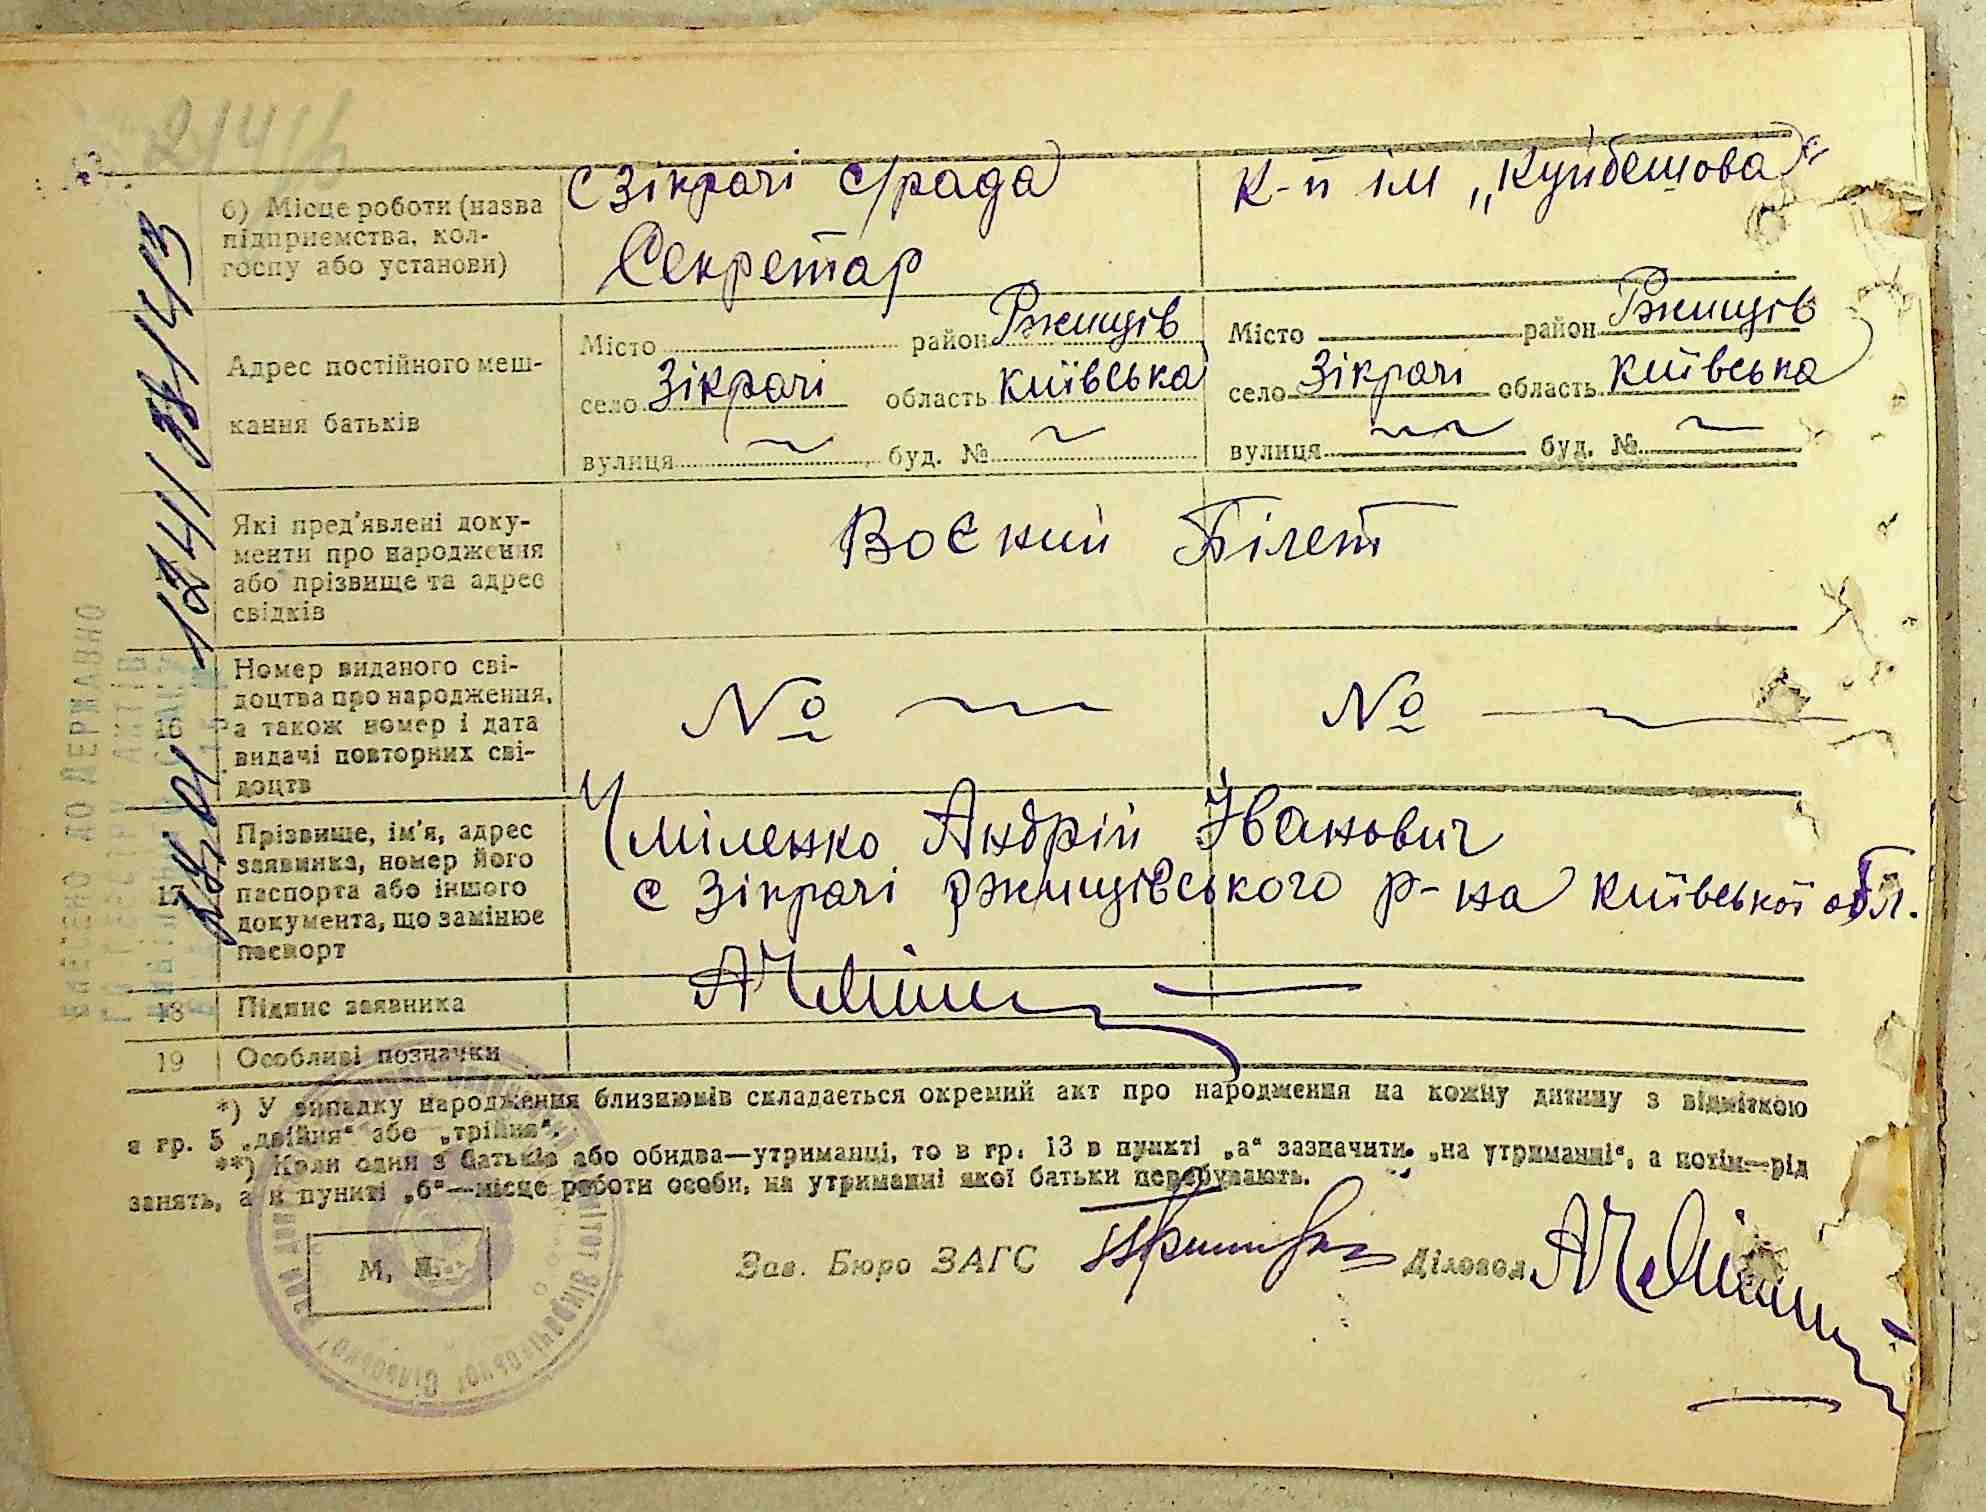 214/б
б) Місце роботи (назва
підприємства, кол-
госпу або установи)
с Зікрачі с/рада
Секретар
К-п ім „Куйбешова"
Адрес постійного меш-
кання батьків
Місто район Ржищів
село Зікрачі область Київська
вулиця ~ буд. № ~
Місто район Ржищів
село Зікрачі область Київська
вулиця ~ буд. № ~
Які пред'явлені доку-
менти про народження
або прізвище та адрес
свідків
Воєний Білет
16
Номер виданого сві-
доцтва про народження,
а також номер і дата
видачі повторних сві-
доцтв
№ —
№ —
17
Прізвище, ім'я, адрес
заявника, номер його
паспорта або іншого
документа, що замінює
паспорт
Чміленко Андрій Іванович
с Зікрачі Ржищівського р-на Київської обл.
18 Підпис заявника
19 Особливі позначки
*) У випадку народження близнюків складається окремий акт про народження на кожну дитину з відміткою
в гр. 5 „двійня" або „трійня".
**) Коли один з батьків або обидва—утриманці, то в гр. 13 в пункті „а" зазначити „на утриманні", а потім—рід
занять, а в пункті „б"—місце роботи особи, на утриманні якої батьки перебувають.
М. П.
Зав. Бюро ЗАГС
Діловод
ВНЕСЕНО ДО ДЕРЖАВНО